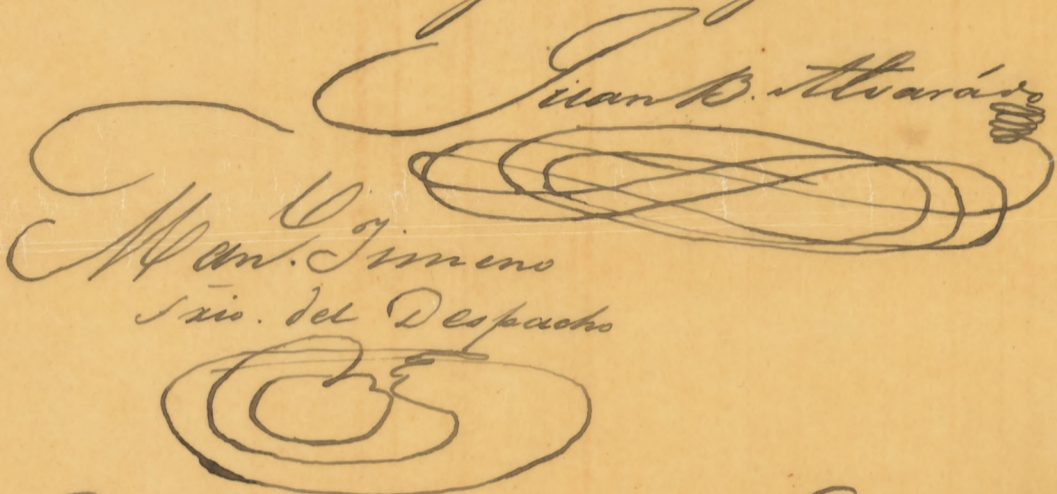 Juan B. Alvarádo
Man. Jimeno
Srio. del Despacho